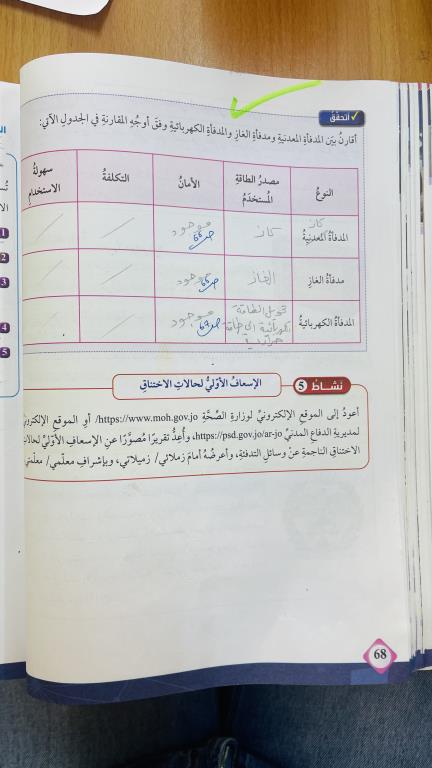 أتحقق
أقارنُ بيَن المدفأةِ المعدنيةِ ومدفأةِ الغازِ والمدفأةِ الكهربائيةِ وفقَ أوجُهِ المقارنةِ في الجدولِ الآتي:
النوعُ
مصدرُ الطاقةِ المُستخدَمُ
الأمانُ
التكلفةُ
سهولةُ الاستخدامِ
كاز
المدفأةُ المعدنيةُ
كاز
موجود
ص66
مدفأةُ الغازِ
الغاز
موجود
ص66
المدفأةُ الكهربائيةُ
تحويل الطاقة
الكهربائية إلى طاقة
حرارية
موجود
ص67
نشاطُ 5
الإسعافُ الأوّليُّ لحالاتِ الاختناقِ
أعودُ إلى الموقعِ الإلكترونيِّ لوزارةِ الصِّحَّةِ https://www.moh.gov.jo/ أوِ الموقعِ
لمديريةِ الدفاعِ المدنيِّ https://psd.gov.jo/ar-jo، وأُعِدُّ تقريرًا مُصوَّرًا عنِ الإسعافِ الأوّليِّ
الاختناقِ الناجمةِ عنْ وسائلِ التدفئةِ، وأعرضُهُ أمامَ زملائي/ زميلاتي، وبإشرافِ معلّمي/
68
1
2
3
4
5